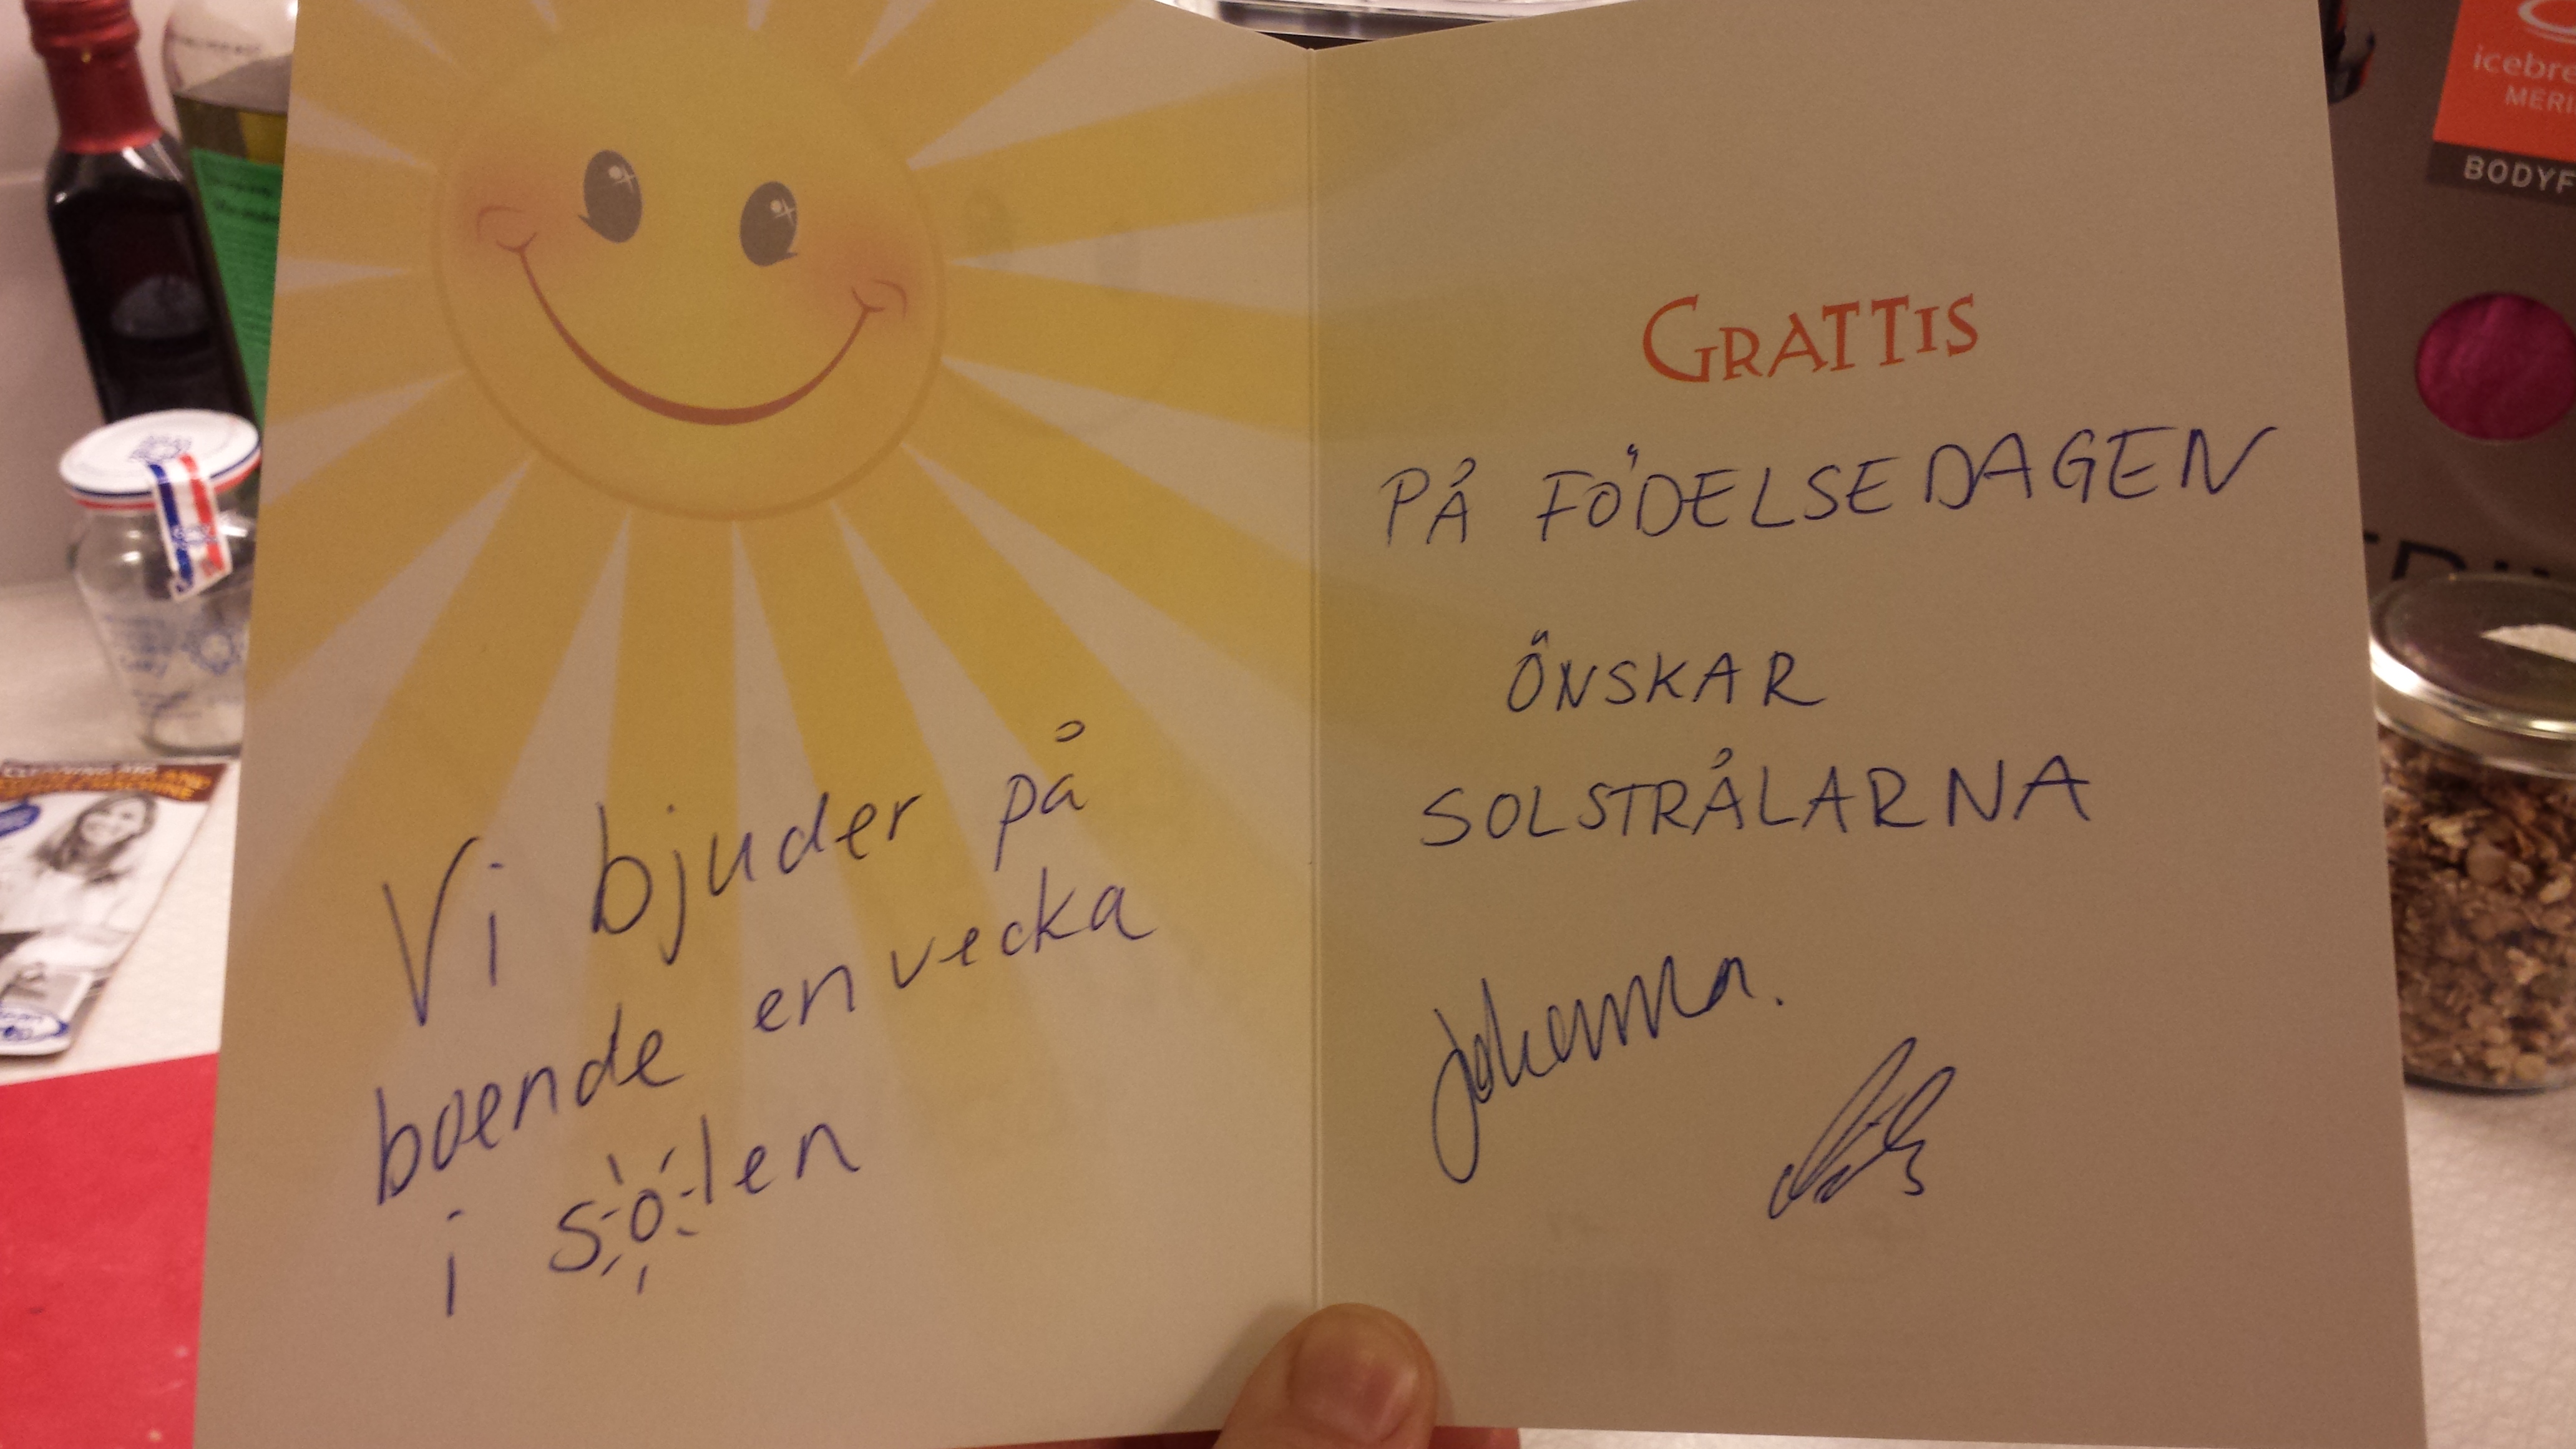 Vi bjuder på
boende en vecka
i solen
GRATTIS
PÅ FÖDELSEDAGEN
ÖNSKAR
SOLSTRÅLARNA
Johanna.
icebre
MERI
BODYF